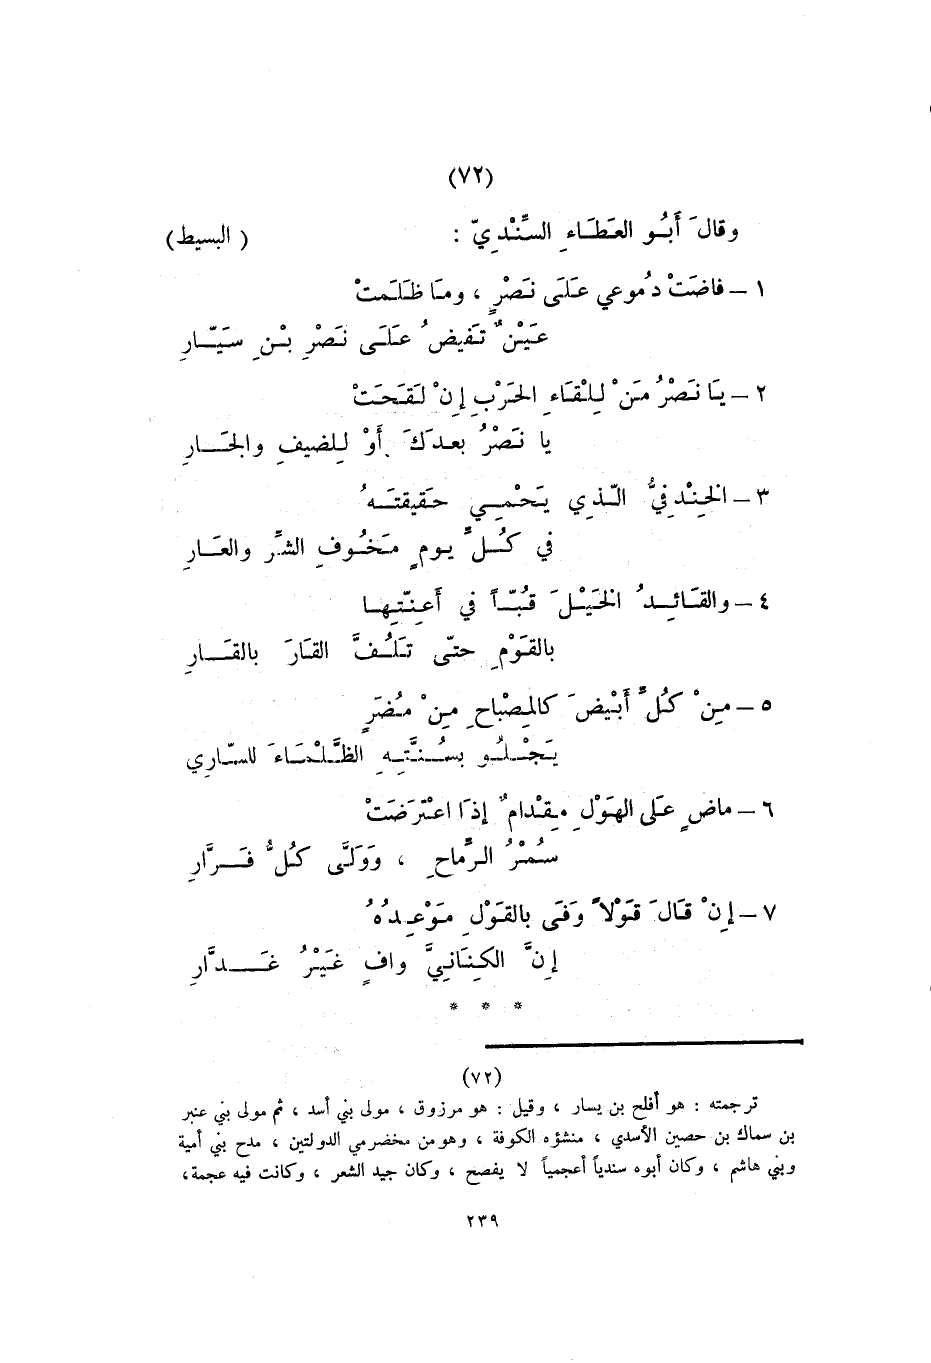 (٧٢)
وقالَ أَبُو العَطَاءِ السِّنْدِيّ :
( البسيط )
١ – فاضَتْ دُموعي عَلَى نَصْرٍ ، ومَا ظَلَمتْ
عَيْنٌ تَفيضُ عَلَى نَصْرِ بْنِ سَيَّارِ
٢ – يَا نَصْرُ مَنْ لِلِقَاءِ الحَرْبِ إِنْ لَقَحَتْ
يا نَصْرُ بعدَكَ أَوْ لِلضيفِ والجَارِ
٣ – الخِنْدِفيُّ الّذِي يَحْمِي حَقيقتَهُ
في كُلِّ يومٍ مَخُوفِ الشرِّ والعَارِ
٤ – والقَائِدُ الخَيْلَ قُبّاً في أَعِنّتِها
بالقَوْمِ حتّى تَلُفَّ القَارَ بالقَارِ
٥ – مِنْ كُلِّ أَبْيضَ كالمِصْباحِ مِنْ مُضَرٍ
يَجْلُو بسُنَّتِهِ الظَّلْمَاءَ للسّارِي
٦ – ماضٍ عَلى الهَوْلِ مِقْدامٌ إذَا اعْتَرَضَتْ
سُمْرُ الرِّماحِ ، وَوَلَّى كُلُّ فَرَّارِ
٧ – إِنْ قَالَ قَوْلاً وَفَى بالقَوْلِ مَوْعِدُهُ
إِنَّ الكِنَانِيَّ وافٍ غَيْرُ غَدَّارِ
* * *
(٧٢)
ترجمته : هو أفلح بن يسار ، وقيل : هو مرزوق ، مولى بني أسد ، ثم مولى بني عنبر
بن سماك بن حصين الأسدي ، منشؤه الكوفة ، وهو من مخضرمي الدولتين ، مدح بني أمية
وبني هاشم ، وكان أبوه سندياً أعجمياً لا يفصح ، وكان جيد الشعر ، وكانت فيه عجمة،
٢٣٩